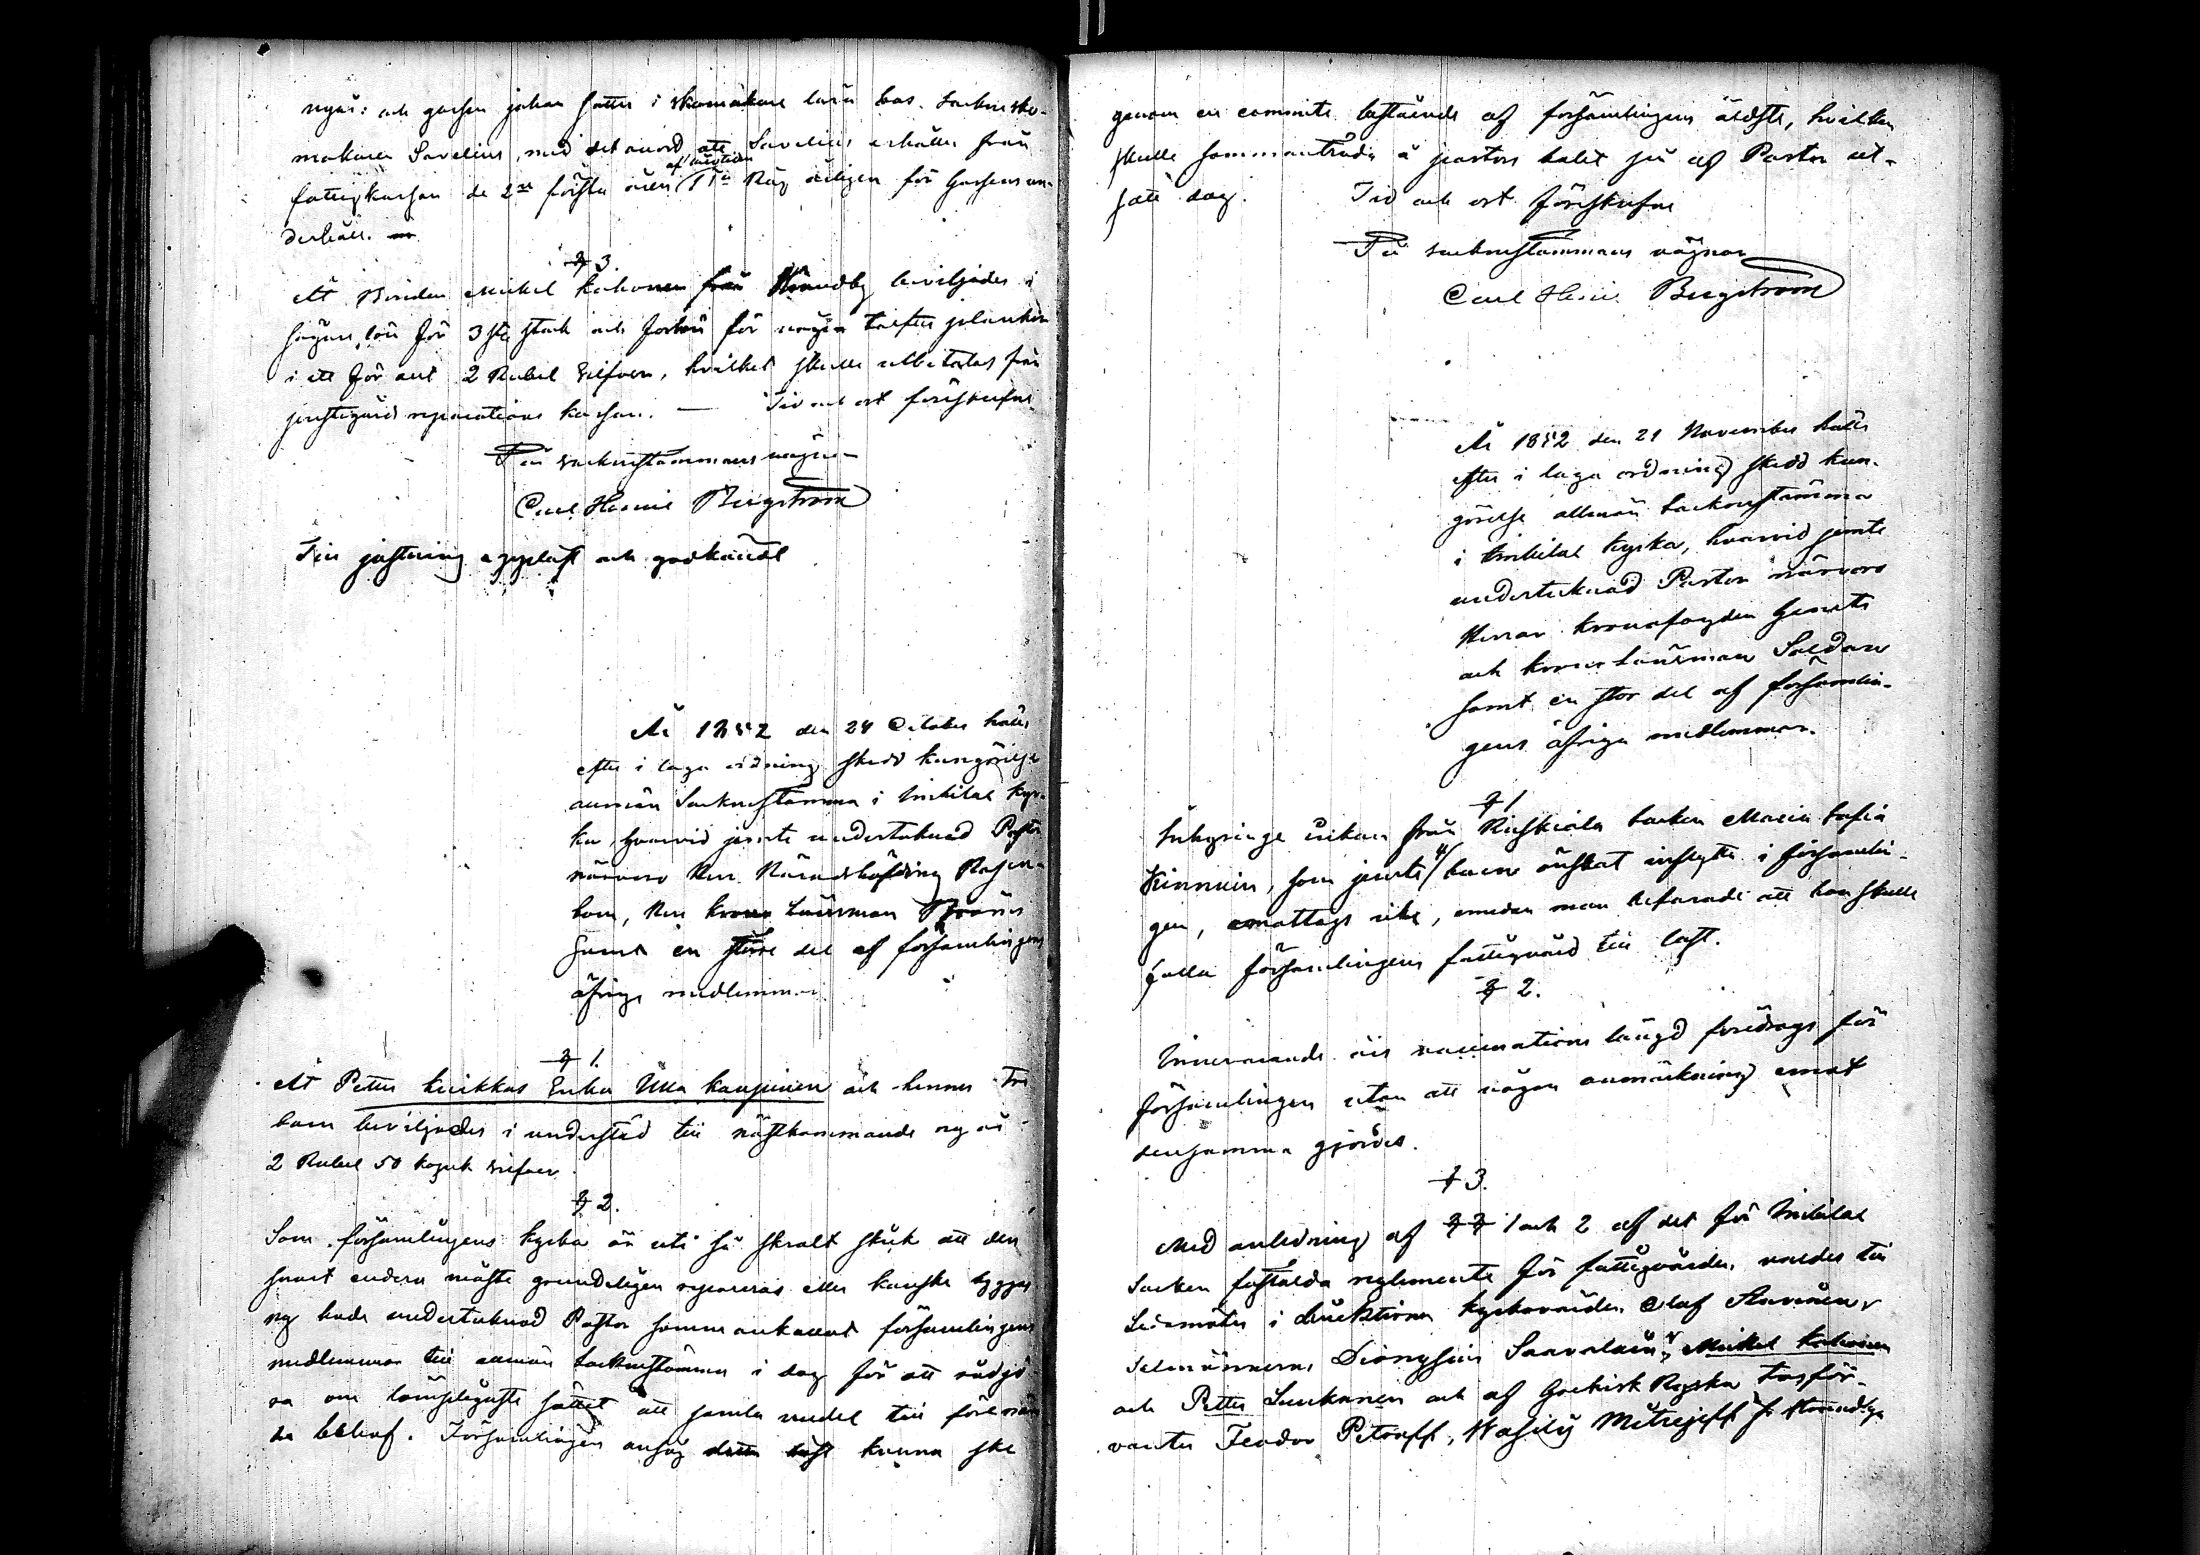 nyår: och gossen Johan sattes i skomakare lära hos Sockne sko-
makaren Savelius, med det anord att Savelius erhåller från
fattigkassan de 2ne första åren 1 Tna Råg årligen för Gossens un-
derhåll.
§ 3.
Åt Bonden Mickel Kohonen från Hämudby beviljades i
sågare lön för 3 st stock och för några tolfter plankor
i ett för allt 2 Rubel Silfver, hvilket skulle utbetalas från
prestgårds reparations kassan. — Tid och ort föreskrifne
På Sockenstämmans vägnar
Carl Henric Bergström
Till justering uppläst och godkändt
År 1852 den 24 October hölls
efter i laga ordning skedd kungörelse
allmän Sockenstämma i Imbilax kyr-
ka, hvarvid jemte undertecknad Pastor
närvoro Herr Häradshöfding Rosen-
bom, Herr krono Länsman
samt en större del af församlingens
öfrige medlemmar
§ 1.
Åt Petter Kuikkas Enka Ulla Kaupinen och hennes Tre
barn beviljades i understöd till nästkommande nyår
2 Rubel 50 kopek Silfver.
§ 2.
Som församlingens kyrka är uti så skralt skick att den
snart endera måste grundeligen repareras eller kanske byggas
ny hade undertecknad Pastor sammankallat församlingens
medlemmar till allmän Sockenstämma i dag för att rådgö-
ra om lämpligaste sättet att samla medel till förenäm-
da behof. Församlingen ansåg detta bäst kunna ske
genom en committe bestående af församlingens äldste, hvilken
skulle sammanträda å pastors bolet på af Pastor ut-
satt dag. Tid och ort förskrifne
På Sockenstämmans vägnar
Carl Henric Bergström
År 1852 den 21 November hölls
efter i laga ordning skedd kun-
görelse allmän Sockenstämma
i Imbilax kyrka, hvarvid jemte
undertecknad Pastor närvoro
Herrar kronofogden Genetz
och krono Länsman Soldan
samt en stor del af församlin-
gens öfriga medlemmar.
§ 1
Inhysinge enkan från Ruskiala Socken Maria Sofia
Kinnuin, som jemte 4 barn önskat inflytta i församlin-
gen, emottogs icke, emedan man befarade att hon skulle
falla församlingens fattigvård till last.
§ 2.
Innevarande års vaccinations längd föredrogs för
församlingen utan att någon anmärkning emot
densamma gjordes.
§ 3.
Med anledning af §§ 1 och 2 af det för Imbilax
Socken faststälda reglemente för fattigvården, valdes till
Ledamöter i direktionen kyrkovärden Olof
Sexmännerne Dionysius Saavalain, Mickel Kohonen
och Petter Suukonen och af Grekisk Ryska trosför-
vanter Feodor Petroff, Wasilij Mitrejeff fr Hämudby